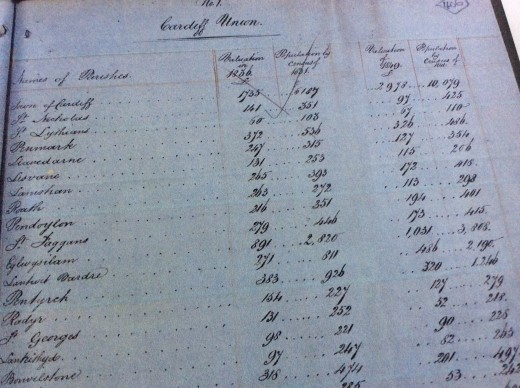 No. 1.
Cardiff Union.
Names of Parishes. Valuation 1836. Population by Census of 1831. Valuation of 1849. Population by Census of 1841.
Town of Cardiff 1755 6187 2978 10,079
St Nicholas 141 351 97 425
St Lythians 60 103 67 110
Penmark 372 536 326 486
Leavedarne 247 315 127 354
Lisvane 131 253 115 206
Lanishan 265 393 172 415
Roath 263 272 113 298
Pendoylon 216 351 194 401
St Faggans 279 446 173 415
Eglwysilam 891 2,820 1,031 3,808
Lantwit Vardre 271 811 486 2,190
Pentyrch 383 926 320 1,246
Radyr 154 227 127 279
St Georges 131 252 52 218
Lankithyd 98 221 90 225
Bonvelstone 97 247 82 263
318 474 201 497
53